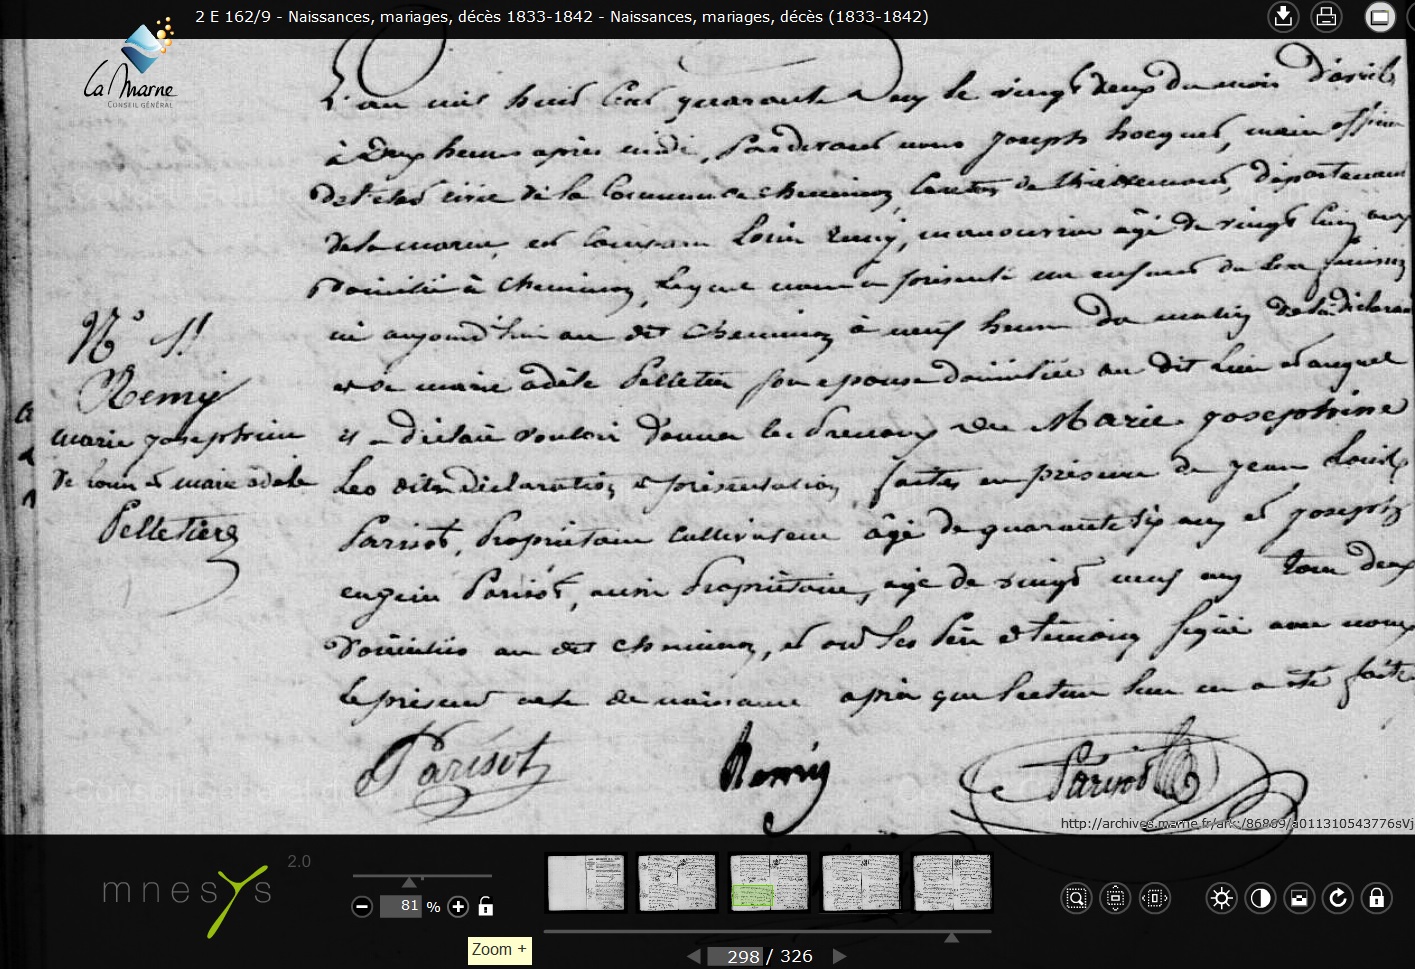 2 E 162/9 - Naissances, mariages, décès 1833-1842 - Naissances, mariages, décès (1833-1842)
La Marne
CONSEIL GÉNÉRAL
L'an mil huit cent quarante Deux le vingt deux du mois d'avril
à Deux heures après midi, Pardevant nous Joseph hocquet, maire officier
de l'état civil de la Commune de cheminon, Canton de thieblemont, département
de la marne, est comparu Louis Remy, manouvrier âgé de vingt Cinq ans
Domicilié à cheminon, Lequel nous a présenté un enfant du sexe féminin
né aujourd'hui au dit cheminon à neuf heures du matin de lui déclarant
et de marie adèle Pelletier son epouse domiciliée au dit lieu et auquel
il a déclaré vouloir donner les Prenoms de Marie Josephine
Les dites déclaration et présentation, faites en présence de Jean Louis
Parisot, Propriétaire cultivateur âgé de quarante six ans et joseph
eugène Parisot, aussi Propriétaire, age de vingt neuf ans tous deux
Domiciliés au dit cheminon, et ont les Père et temoins signé avec nous
le présent acte de naissance après que lecture leur en a été faite
N°
Remy
marie josephine
de Louis et marie adele
Pelletier
Parisot
Remy
Parisot
Conseil Général
Conseil Général de
http://archives.marne.fr/ark:/86869/a011310543776sVj
mnesys 2.0
81 %
Zoom +
298 / 326